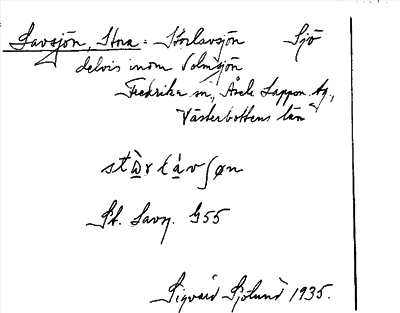 Lavsjön, Stora = Storlavsjön Sjö
delvis inom Volmsjön
Fredrika sn., Åsele Lappm. tg.,
Västerbottens län
St. Lavsj. G55
Sigvard Sjölund 1935.